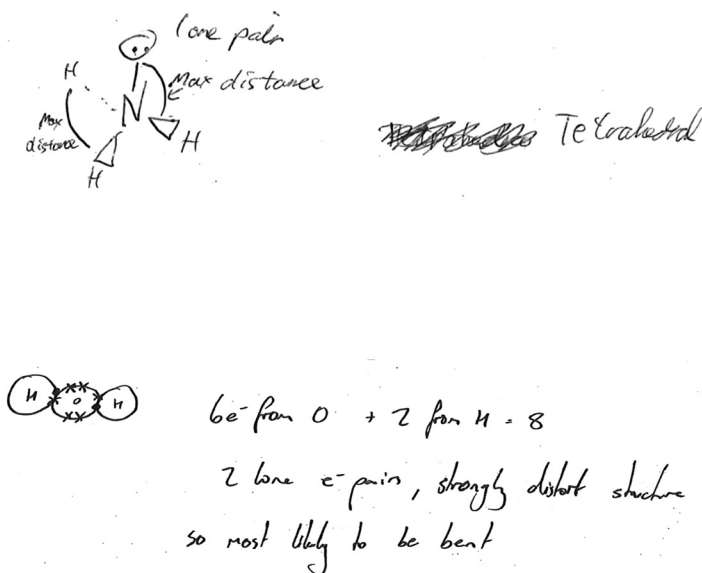 lone pair
H
Max distance
N
Max
distance
H
H
Tetrahedral
H O H
6e⁻ from O + 2 from H = 8
2 lone e⁻ pairs, strongly distort structure
so most likely to be bent